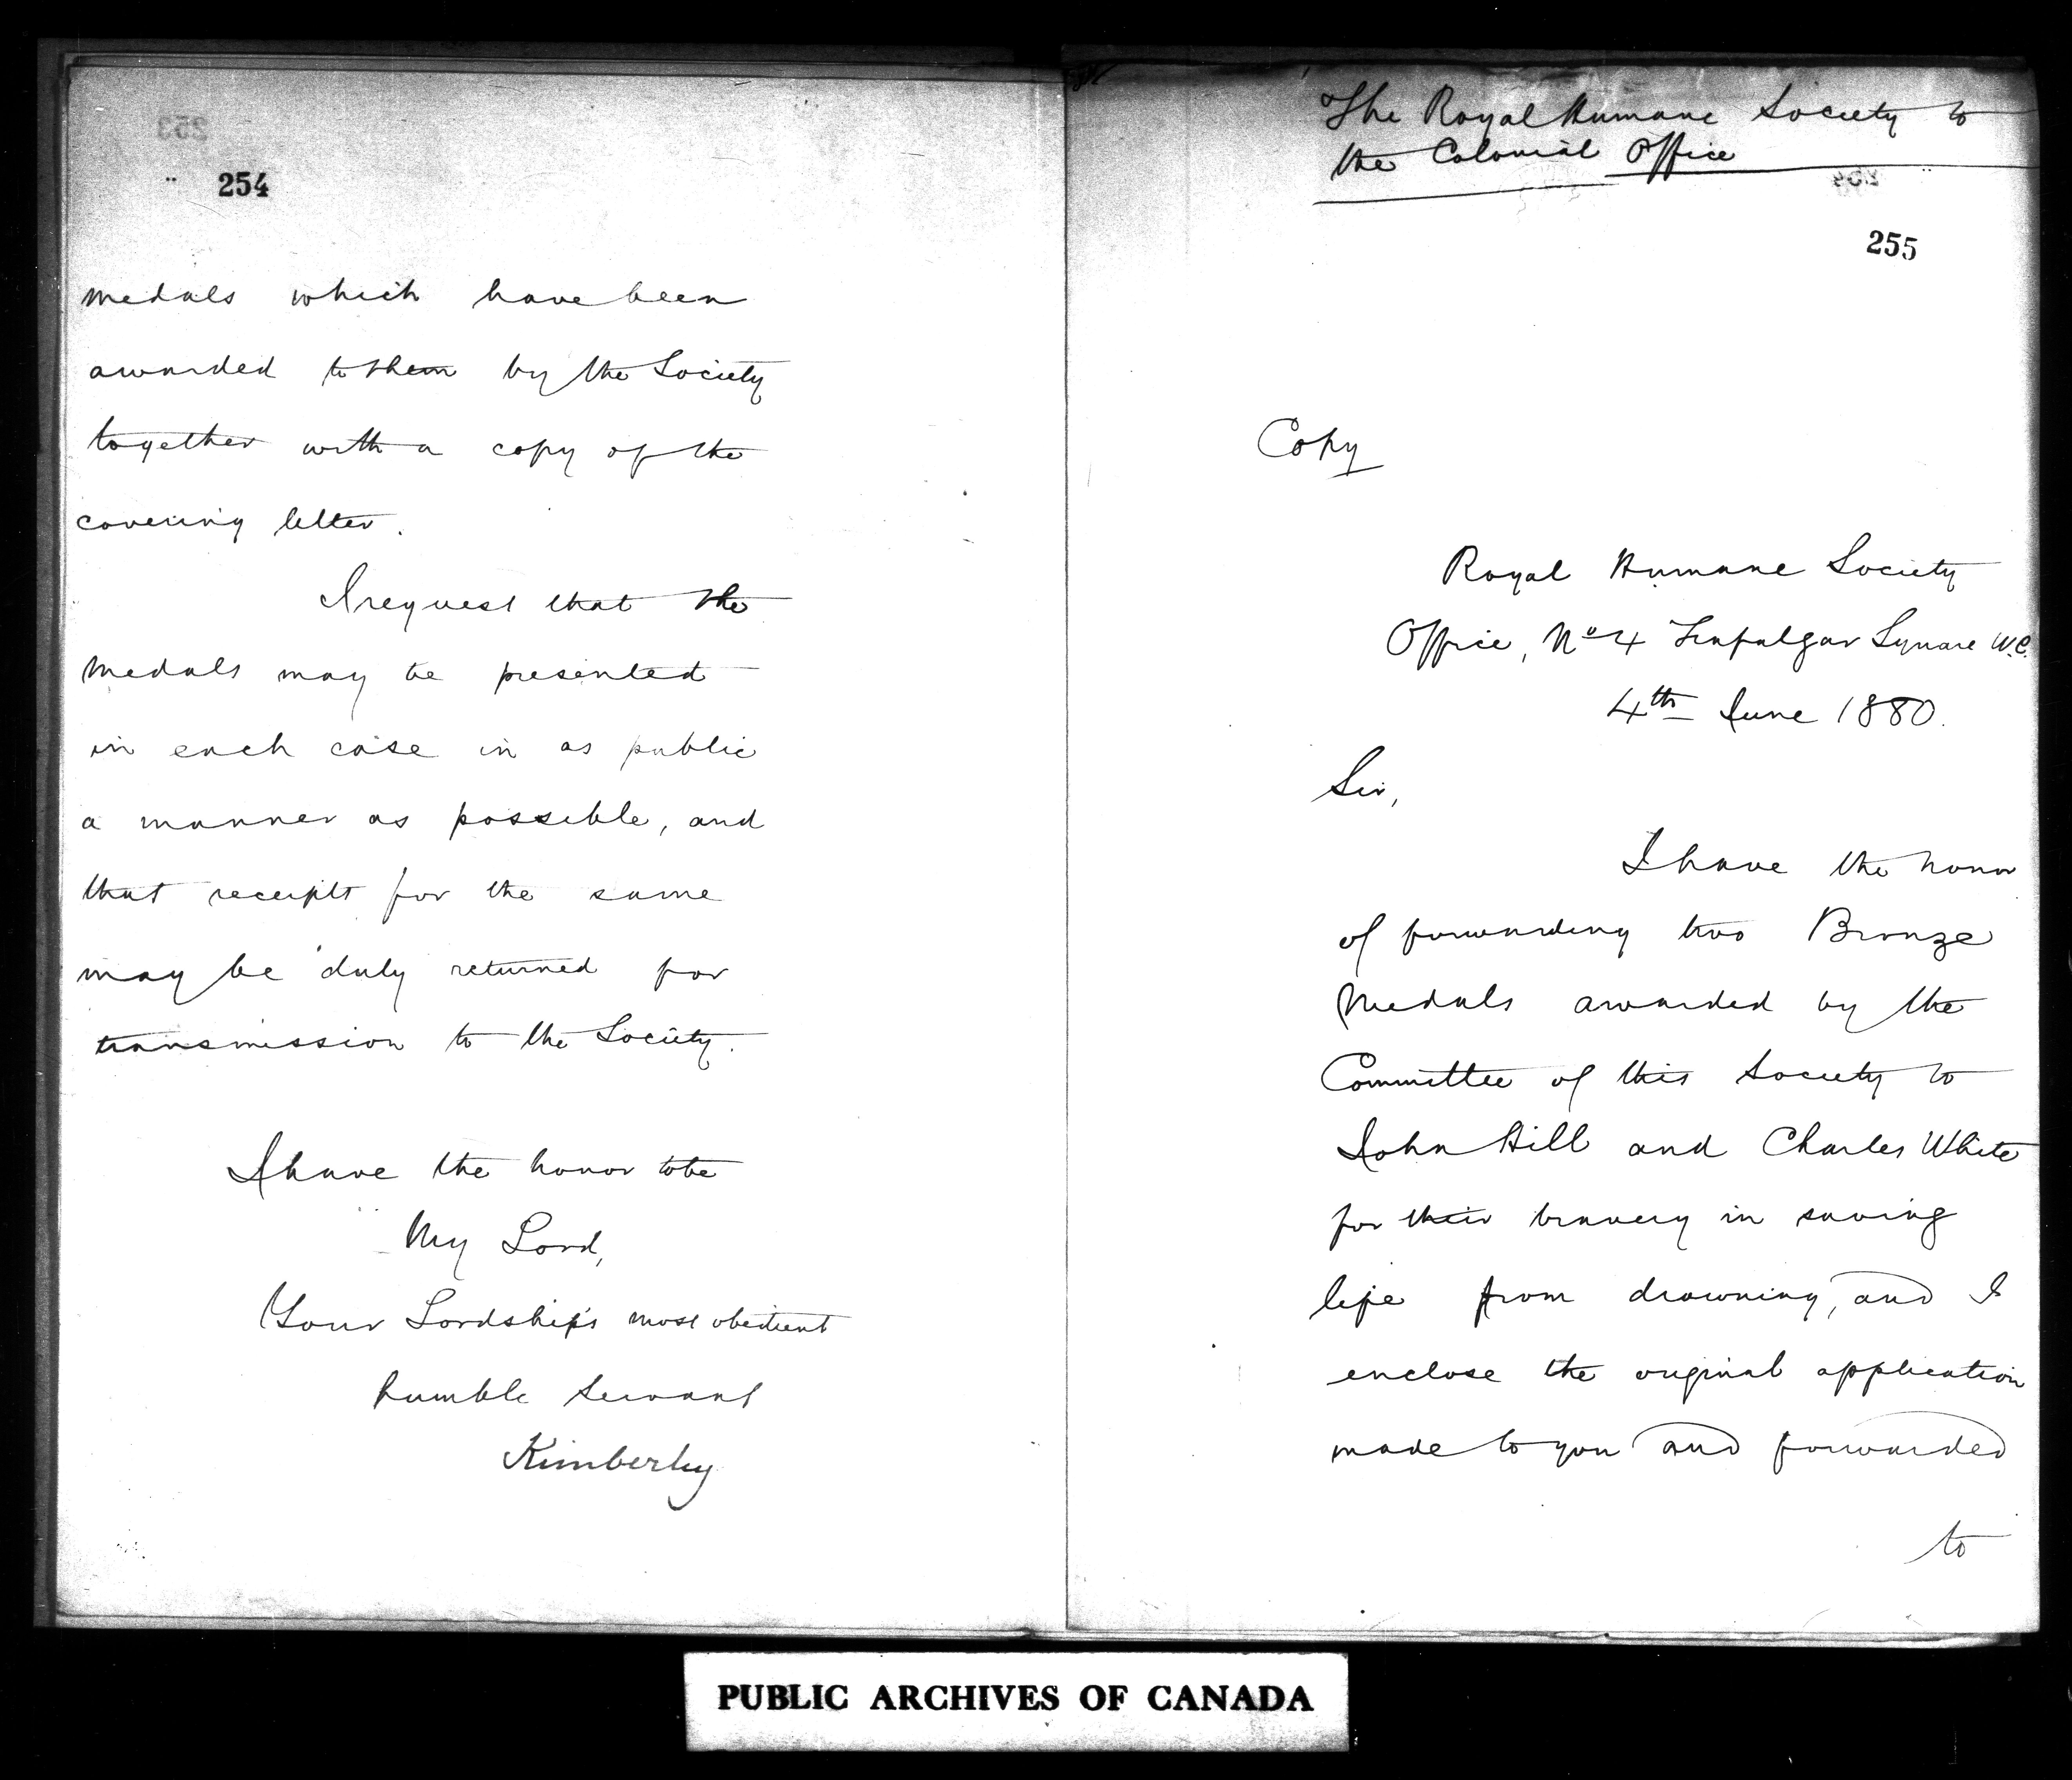 254
medals which have been
awarded to them by the Society
together with a copy of the
covering letter.
I request that the
medals may be presented
in each case in as public
a manner as possible, and
that receipts for the same
may be duly returned for
transmission to the Society.
I have the honor to be
My Lord,
Your Lordship's most obedient
humble servant
Kimberley
The Royal Humane Society to
the Colonial Office
255
Copy
Royal Humane Society
Office, No 4 Trafalgar Square W.C.
4th June 1880.
Sir,
I have the honor
of forwarding two Bronze
Medals awarded by the
Committee of this Society to
John Hill and Charles White
for their bravery in saving
life from drowning, and I
enclose the original application
made to you and forwarded
to
PUBLIC ARCHIVES OF CANADA